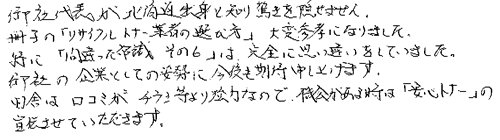 御社代表が北海道出身と知り驚きを隠せません。
冊子の「リサイクルトナー業者の選び方」大変参考になりました。
特に「間違った常識 その6」は、完全に思い違いをしていました。
御社の企業としての姿勢に今後も期待申し上げます。
田舎は口コミがチラシ等より強力なので、機会がある時は「安心トナー」の
宣伝させていただきます。